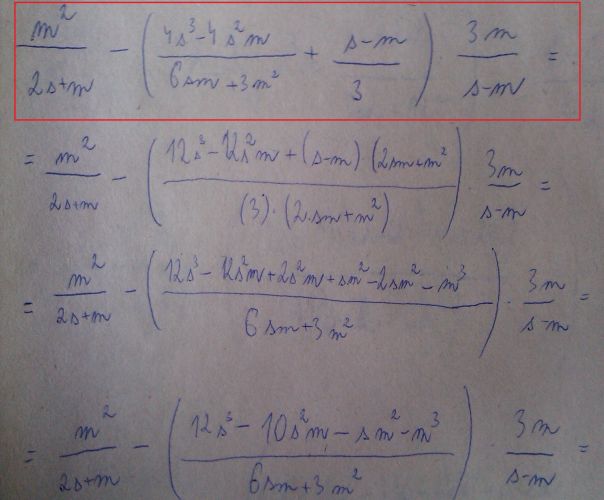 m²/(2s+m) − ( (4s³−4s²m)/(6sm+3m²) + (s−m)/3 ) 3m/(s−m) =
= m²/(2s+m) − ( (12s³−12s²m+(s−m)·(2sm+m²)/((3)·(2sm+m²)) ) 3m/(s−m) =
= m²/(2s+m) − ( (12s³−12s²m+2s²m+sm²−2sm²−m³)/(6sm+3m²) ) · 3m/(s−m) =
= m²/(2s+m) − ( (12s³−10s²m−sm²−m³)/(6sm+3m²) ) · 3m/(s−m) =